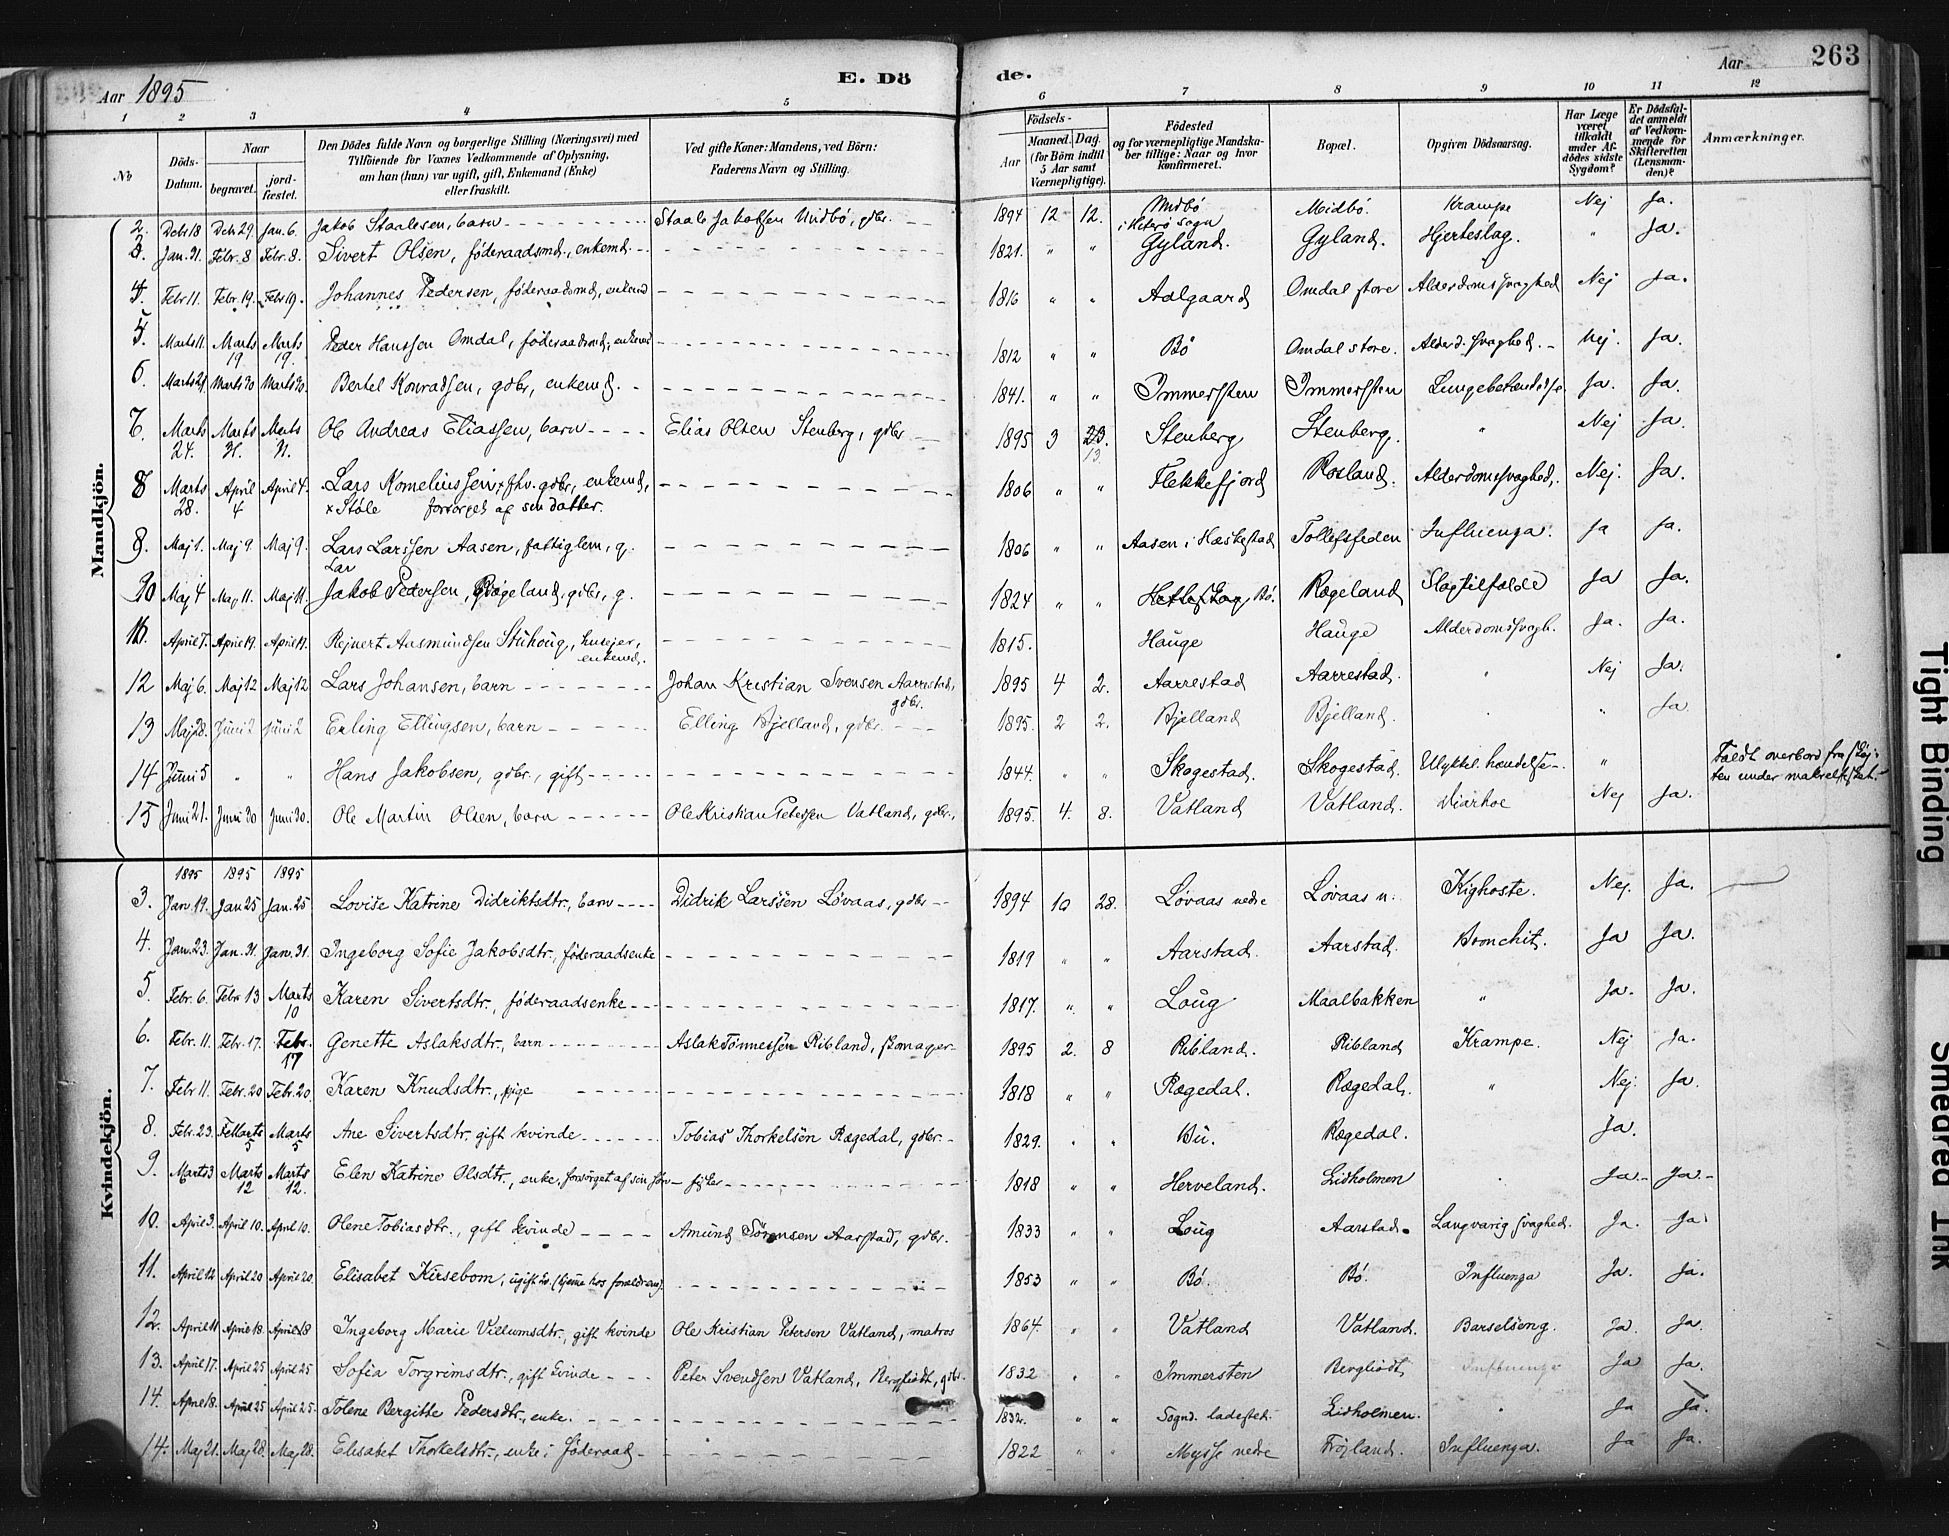 Aar 1895
E. Dö
de.
Aar
263
1 2 3 4 5 6 7 8 9 10 11 12
No
Döds-Datum.
Naar
begravet.
jord-fæstet.
Den Dödes fulde Navn og borgerlige Stilling (Næringsvei) med
Tilföiende for Voxnes Vedkommende af Oplysning,
om han (hun) var ugift, gift, Enkemand (Enke)
eller fraskilt.
Ved gifte Koner: Mandens, ved Börn:
Faderens Navn og Stilling.
Födsels-
Aar
Maaned. Dag.
(for Börn indtil
5 Aar samt
Værnepligtige).
Födested
og for værnepligtige Mandska-
ber tillige: Naar og hvor
konfirmeret.
Bopæl.
Opgiven Dödsaarsag.
Har Læge
været
tilkaldt
under Af-
dödes sidste
Sygdom?
Er Dödsfal-
det anmeldt
af Vedkom-
mende for
Skifteretten
(Lensman-
den)?
Anmærkninger.
Mandkjön.
2. Dcbr 18 Dcbr 29. Jan. 6. Jakob Staalesen, barn Staale Jakobsen Midbö, gdbr. 1894 12 12. Midbö i Hiterö sogn Midbö. Krampe Nej Ja.
3. Jan. 31. Febr. 8 Febr. 8. Sivert Olsen, föderaadsmd., enkemd. 1821. " " Gyland. Gyland. Hjerteslag. " Ja.
4. Febr 11. Febr. 19. Febr 19. Johannes Pedersen, föderaadsmd, enkemd 1816 " " Aalgaard Omdal store Alderdomssvaghed Nej Ja.
5. Marts 11. Marts 19. Marts 19. Peder Hanssen Omdal, föderaadsmd, enkemd 1812 " " Bö Omdal store. Alderd. svaghed. Nej. Ja.
6. Marts 21 Marts 30 Marts 30. Bertel Konradsen, gdbr, enkemd. 1841. " " Immersten Immersten Lungebetændelse Ja. Ja.
7. Marts 24. Marts 31. Marts 31. Ole Andreas Eliassen, barn Elias Olsen Stenberg, gdbr 1895 3 23. 13. Stenberg Stenberg. " Nej Ja.
8 Marts 28. April 4 April 4. Lars Korneliussen, x fhv. gdbr, enkemd,
x Støle forsörget af sin datter. 1806 " " Flekkefjord Rosland. Alderdomssvaghed. Nej. Ja.
9. Maj 1. Maj 9. Maj 9. Lars Larssen Aasen, fattiglem, g. 1806 " " Aasen i Hæskestad Tollefsfeden Influenza. Ja Ja.
10 Maj 4 Maj 11. Maj 11. Jakob Pedersen, Rægeland, gdbr, g. 1824 " " Bö. Rægeland Slagtilfælde Ja Ja.
11. April 7. April 19. April 19. Rejnert Aasmundsen Stuhoug, husejer, enkemd. 1815. Hauge Hauge Alderdomssvagh. Ja. Ja.
12 Maj 6. Maj 12 Maj 12 Lars Johansen, barn Johan Kristian Svensen Aarrestad, gdbr. 1895 4 2. Aarrestad Aarrestad. " Nej Ja.
13 Maj 28. Juni 2 Juni 2 Erling Ellingsen, barn Elling Bjelland, gdbr. 1895. 2 2. Bjelland Bjelland. " " Ja
14 Juni 5 " " Hans Jakobsen, gdbr., gift 1844. " " Skogestad. Skogestad. Ulykkel. hændelse. " Faldt overbord fra sköj-
ten under makrelfisket.
15 Juni 21. Juni 30 Juni 30. Ole Martin Olsen, barn Ole Kristian Petersen Vatland, gdbr., 1895. 4. 8. Vatland Vatland. Diarhoe Nej Ja.
Kvindekjön.
1895 1895 1895
3. Jan. 19. Jan 25 Jan. 25 Lovise Katrine Didriktsdtr., barn Didrik Larssen Lövaas, gdbr 1894 10 28. Lövaas nedre Lövaas n. Kighoste. Nej. Ja.
4. Jan. 23. Jan. 31. Jan. 31. Ingeborg Sofie Jakobsdtr., föderaadsenke 1819 " " Aarstad. Aarstad. Bronchit. Ja Ja.
5. Febr. 6. Febr 13 Marts 10 Karen Sivertsdtr., föderaadsenke 1817. " " Loug Maalbakken " Ja. Ja.
6. Febr. 11. Febr. 17. Febr. 17 Genette Aslaksdtr., barn Aslak Tönnessen Ribland, skomager 1895 2. 8 Ribland. Ribland Krampe. Nej Ja.
7. Febr 11. Febr. 20 Febr. 20. Karen Knudsdtr., pige 1818 " " Rægedal. Rægedal. " Nej. Ja.
8. Febr. 23. Marts 5 Marts 5 Ane Sivertsdtr. gift kvinde Tobias Thorkelsen Rægedal, gdbr. 1829. " " Bu. Rægedal. Ja.
9. Marts 3 Marts 12 Marts 12. Elen Katrine Olsdtr., enke, forsörget af sin sön 1818 " " Herveland. Lidholmen " Ja. Ja.
10. April 3. April 10. April 10. Olene Tobiasdtr., gift kvinde Amund Sörensen Aarstad, gdbr. 1833 " " Loug Aarstad. Langvarig svaghed. Ja. Ja
11. April 12 April 20 April 20. Elisabet Kirsebom, ugift kv. (hjemme hos forældrene). 1853 " " Bö. Bö. Influenza Ja. Ja.
12. April 11 April 18. April 18 Ingeborg Marie Villumsdtr., gift kvinde Ole Kristian Petersen Vatland, matros 1864. " " Vatland Vatland. Barselseng. Ja. Ja.
13. April 17. April 25 April 25 Sofia Torgrimsdtr., gift kvinde Peter Svendsen Vatland, Bergliodt, gdbr. 1832 " " Immersten Bergliodt Influenza Ja Ja.
14. April 18. April 25 April 25. Tolene Bergitte Pedersdtr., enke. 1832. " " Sognd. ladested. Lidholmen. " Ja Ja.
14. Maj 21. Maj 28. Maj 28. Elisabet Thorkelsdtr., enke i föderaad 1822 " " Mysse nedre Fröjland. Influenza. Ja Ja.
Tight Binding
Smeared Ink